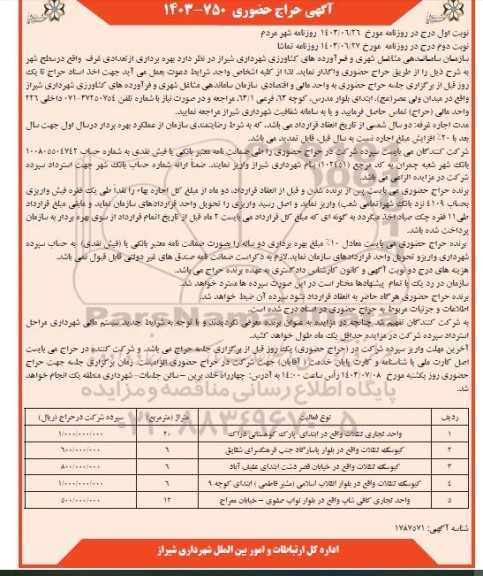 آگهی حراج حضوری ۷۵۰-۱۴۰۳
نوبت اول درج در روزنامه مورخ ۱۴۰۳/۰۶/۲۶ روزنامه شهر مردم
نوبت دوم درج در روزنامه مورخ ۱۴۰۳/۰۶/۲۷ روزنامه تماشا
سازمان ساماندهی مشاغل شهری و فرآورده های کشاورزی شهرداری شیراز در نظر دارد بهره برداری از تعدادی غرف واقع در سطح شهر
به شرح ذیل را از طریق حراج حضوری واگذار نماید. لذا از کلیه اشخاص واجد شرایط دعوت بعمل می آید جهت اخذ اسناد حراج تا یک
روز قبل از برگزاری جلسه حراج حضوری به واحد مالی و اقتصادی سازمان ساماندهی مشاغل شهری و فرآورده های کشاورزی شهرداری شیراز
واقع در میدان ولی عصر(عج)، ابتدای بلوار مدرس، کوچه ۶۳، فرعی ۶۳/۱ مراجعه و در صورت نیاز با شماره تلفن ۳۷۲۵۰۷۵۴-۰۷۱ داخلی ۲۲۶
واحد مالی (حراج) تماس حاصل فرمایید و یا به سامانه شفافیت شهرداری شیراز مراجعه نمایید.
مدت اجاره غرفه: دو سال شمسی از تاریخ انعقاد قرارداد می باشد. که به شرط رضایتمندی سازمان از عملکرد بهره بردار در سال اول جهت سال
بعد با ۲۰٪ افزایش مبلغ اجاره نسبت به سال قبل، قابل تمدید می باشد.
شرکت کنندگان می بایست سپرده شرکت در حراج حضوری را طی ضمانت نامه معتبر بانکی یا فیش نقدی به شماره حساب ۱۰۰۸۰۵۵۰۴۷۴۲
بانک شهر شعبه چمران به کد مرجع (۱۰۲۴۵۱) بنام شهرداری شیراز واریز نمایند. ضمناً ارائه شماره حساب بانک شهر جهت استرداد سپرده
شرکت در مزایده الزامی می باشد.
برنده حراج حضوری می بایست پس از برنده شدن و قبل از انعقاد قرارداد، دو ماه از مبلغ کل اجاره بها را نقداً طی یک فقره فیش واریزی
بحساب ۴۱۰۹ نزد بانک شهر(تمامی شعب) واریز نماید و اصل رسید واریزی را تحویل واحد قراردادهای سازمان نماید و مابقی مبلغ قرارداد
طی ۱۱ فقره چک صیاد اخذ میگردد به گونه ای که مبلغ کل قرارداد می بایست ۲ ماه قبل از تاریخ اتمام قرارداد از سوی بهره بردار به سازمان
پرداخت شده باشد.
برنده حراج حضوری می بایست معادل ۱۰٪ مبلغ بهره برداری دو ساله را بصورت ضمانت نامه معتبر بانکی یا (فیش نقدی) به حساب سپرده
شهرداری واریز و تحویل واحد قراردادهای سازمان نماید. لازم به ذکر است ضمانت نامه صندق های غیر دولتی قابل قبول نمی باشد.
هزینه های درج دو نوبت آگهی و کانون کارشناس دادگستری به عهده برنده حراج می باشد.
سازمان در رد یک یا تمام پیشنهادها مختار است در این صورت سپرده ها مسترد خواهد شد.
برنده حراج حضوری هرگاه حاضر به انعقاد قرارداد نشود سپرده آن ضبط خواهد شد.
اطلاعات و جزئیات مربوط به حراج حضوری در اسناد درج شده است.
به شرکت کنندگان تفهیم شد چنانچه در مزایده به عنوان برنده معرفی نگردیدند و با توجه به شرایط جدید سیستم مالی شهرداری مراحل
استرداد سپرده شرکت در مزایده حداقل یک ماه طول خواهد کشید.
آخرین مهلت واریز سپرده شرکت در (حراج حضوری) یک روز قبل از برگزاری جلسه حراج می باشد. و شرکت کننده در حراج می بایست
اصل کارت ملی یا شناسنامه و کارت پایان خدمت ( آقایان) جهت شرکت در حراج حضوری الزامیست. زمان برگزاری جلسه جهت حراج
حضوری روز یکشنبه مورخ ۱۴۰۳/۰۷/۰۸ راس ساعت ۱۴:۰۰ به آدرس: چهارراه خلد برین – سالن جلسات- شهرداری منطقه یک انجام خواهد
شد.
ردیف نوع فعالیت متراژ (مترمربع) سپرده شرکت در حراج (ریال)
۱ واحد تجاری تنقلات واقع در ابتدای پارک کوهستانی دراک ۲۰ ۱/۰۰۰/۰۰۰/۰۰۰
۲ کیوسک تنقلات واقع در بلوار پاسارگاد جنب فرهنگسرای شقایق ۶ ۶۰۰/۰۰۰/۰۰۰
۳ کیوسک تنقلات واقع در خیابان قصردشت ابتدای عفیف آباد ۶ ۸۰۰/۰۰۰/۰۰۰
۴ کیوسک تنقلات واقع در بلوار انقلاب اسلامی (مشیر فاطمی ) ابتدای کوچه ۹ ۶ ۱/۰۰۰/۰۰۰/۰۰۰
۵ واحد تجاری کافی شاپ واقع در بلوار نواب صفوی – خیابان معراج ۱۲ ۵۰۰/۰۰۰/۰۰۰
شناسه آگهی: ۱۷۸۷۵۷۱
اداره کل ارتباطات و امور بین الملل شهرداری شیراز